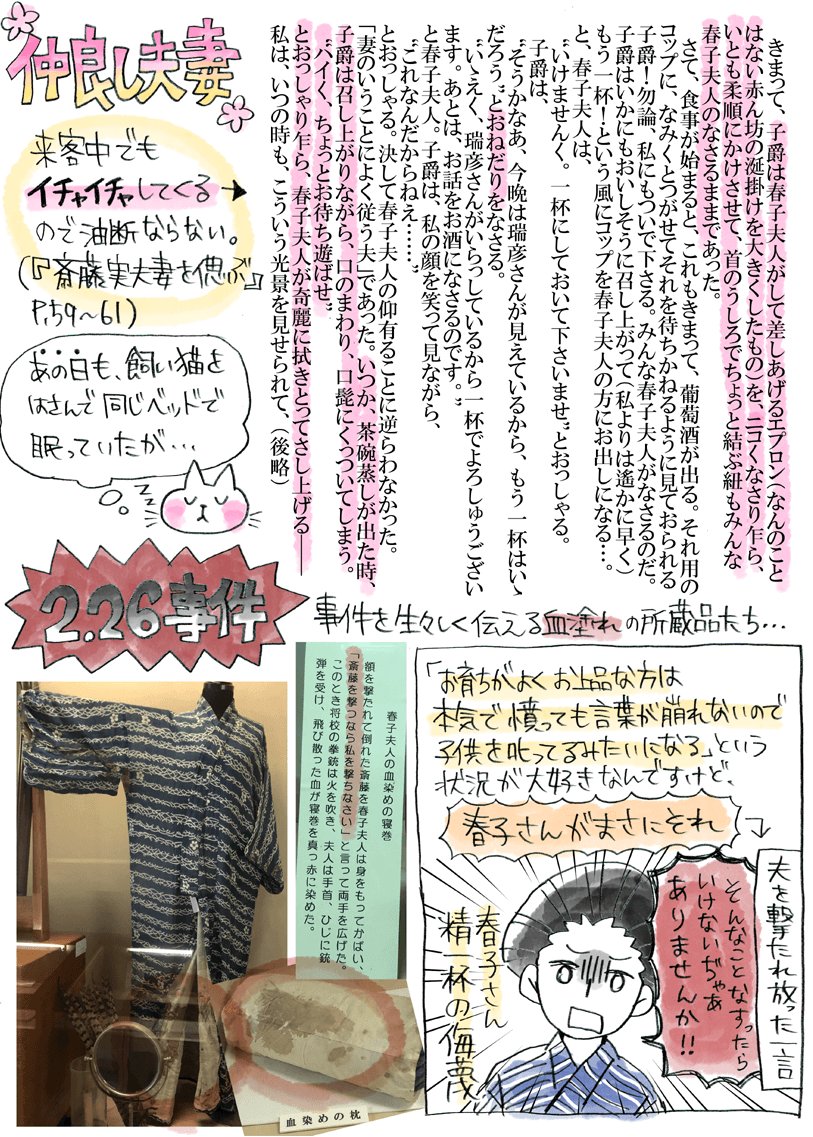 仲良し夫妻
来客中でも
イチャイチャしてくる→
ので油断ならない。
(『斎藤実夫妻を偲ぶ』
P.59〜61)
きまって、子爵は春子夫人がして差しあげるエプロン(なんのこと
はない赤ん坊の涎掛けを大きくしたもの)を、ニコ〱なさり乍ら、
いとも柔順にかけさせて、首のうしろでちょっと結ぶ紐もみんな
春子夫人のなさるままであった。
さて、食事が始まると、これもきまって、葡萄酒が出る。それ用の
コップに、なみ〱とつがせてそれを待ちかねるように見ておられる
子爵！勿論、私にもついで下さる。みんな春子夫人がなさるのだ。
子爵はいかにもおいしそうに召し上がって(私よりは遙かに早く)
もう一杯！という風にコップを春子夫人の方にお出しになる…。
と、春子夫人は、
“いけませんく。一杯にしておいて下さいませ”とおっしゃる。
子爵は、
“そうかなあ、今晩は瑞彦さんが見えているから、もう一杯はいゝ
だろう”とおねだりをなさる。
“いゝえ、瑞彦さんがいらっしているから一杯でよろしゅうござい
ます。あとは、お話をお酒になさるのです。”
と春子夫人。子爵は、私の顔を笑って見ながら、
“これなんだからねえ……”
とおっしゃる。決して春子夫人の仰有ることに逆らわなかった。
「妻のいうことによく従う夫」であった。いつか、茶碗蒸しが出た時、
子爵は召し上がりながら、口のまわり、口髭にくっついてしまう。
“ハイく、ちょっとお待ち遊ばせ”
とおっしゃり乍ら、春子夫人が奇麗に拭きとってさし上げる――
私は、いつの時も、こういう光景を見せられて、(後略)
あの日も、飼い猫を
はさんで同じベッドで
眠っていたが…
zzz
2.26事件
事件を生々しく伝える血塗れの所蔵品たち…
春子夫人の血染めの寝巻
額を撃たれて倒れた斎藤を春子夫人は身をもってかばい、
「斎藤を撃つなら私を撃ちなさい」と言って両手を広げた。
このとき将校の拳銃は火を吹き、夫人は手首、ひじに銃
弾を受け、飛び散った血が寝巻を真っ赤に染めた。
血染めの枕
「お育ちがよくお上品な方は
本気で憤っても言葉が崩れないので
子供を叱ってるみたいになる」という
状況が大好きなんですけど、
春子さんがまさにそれ
夫を撃たれ放った一言
そんなことなすったら
いけないぢゃあ
ありませんか!!
春子さん
精一杯の侮蔑